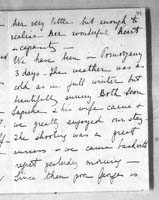 her very little but enough to
realise her wonderful heart
& capacity –
We have been in Pomorzany
3 days – The weather was as
cold as in full winter but
beautifully sunny Both
& his wife came &
we greatly enjoyed our stay –
The shooting was a great
success & we came back with
regret yesterday morning –
Since then poor is